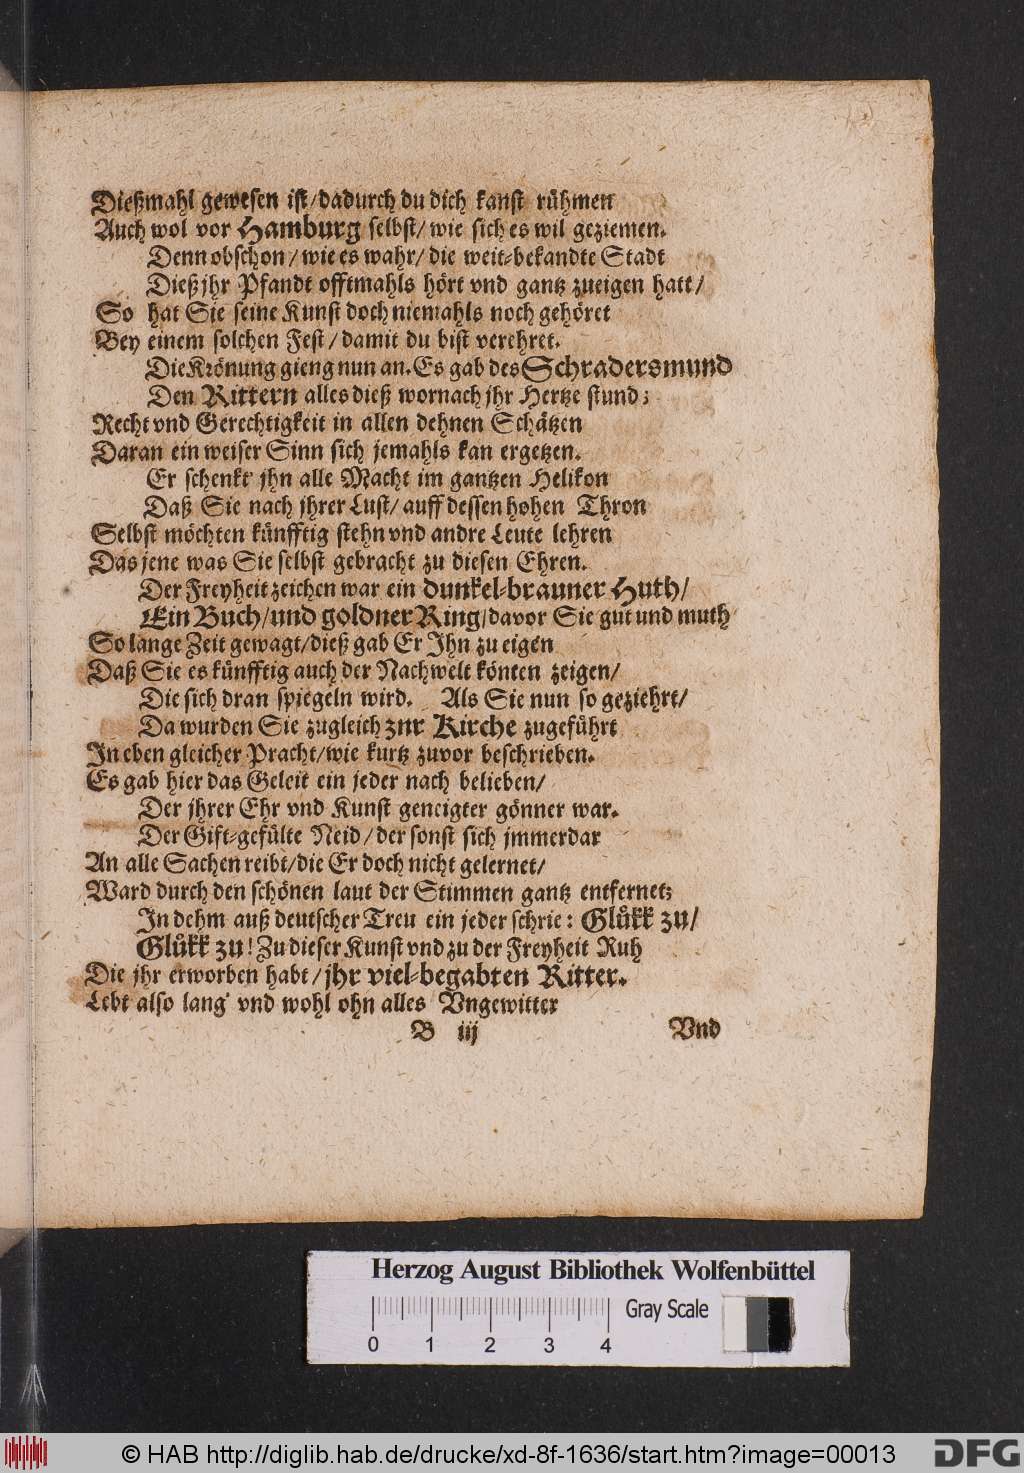 Dießmahl gewesen ist/dadurch du dich kanst rühmen
Auch wol vor Hamburg selbst/ wie sich es wil geziemen.
Denn obschon/ wie es wahr/ die weit-bekandte Stadt
Dieß jhr Pfandt offtmahls hört vnd gantz zueigen hatt/
So hat Sie seine Kunst doch niemahls noch gehöret
Bey einem solchen Fest/ damit du bist verehret.
Die Krönung gieng nun an. Es gab des Schradersmund
Den Rittern alles dieß wornach jhr Hertze stund;
Recht vnd Gerechtigkeit in allen dehnen Schätzen
Daran ein weiser Sinn sich jemahls kan ergetzen.
Er schenkt jhn alle Macht im gantzen Helikon
Daß Sie nach jhrer Lust/ auff dessen hohen Thron
Selbst möchten künfftig stehn vnd andre Leute lehren
Das jene was Sie selbst gebracht zu diesen Ehren.
Der Freyheit zeichen war ein dunkel-brauner Huth/
Ein Buch/und goldner Ring/davor Sie gut und muth
So lange Zeit gewagt/dieß gab Er Ihn zu eigen
Daß Sie es künfftig auch der Nachwelt könten zeigen/
Die sich dran spiegeln wird. Als Sie nun so geziehrt/
Da wurden Sie zugleich znr Kirche zugeführt
In eben gleicher Pracht/wie kurtz zuvor beschrieben.
Es gab hier das Geleit ein jeder nach belieben/
Der jhrer Ehr vnd Kunst geneigter gönner war.
Der Gift-gefülte Neid/der sonst sich jmmerdar
An alle Sachen reibt/die Er doch nicht gelernet/
Ward durch den schönen laut der Stimmen gantz entfernet;
In dehm auß deutscher Treu ein jeder schrie: Glükk zu/
Glükk zu! Zu dieser Kunst vnd zu der Freyheit Ruh
Die jhr erworben habt/jhr viel-begabten Ritter.
Lebt also lang' vnd wohl ohn alles Vngewitter
B iij Vnd
Herzog August Bibliothek Wolfenbüttel
Gray Scale
0 1 2 3 4
© HAB http://diglib.hab.de/drucke/xd-8f-1636/start.htm?image=00013 DFG